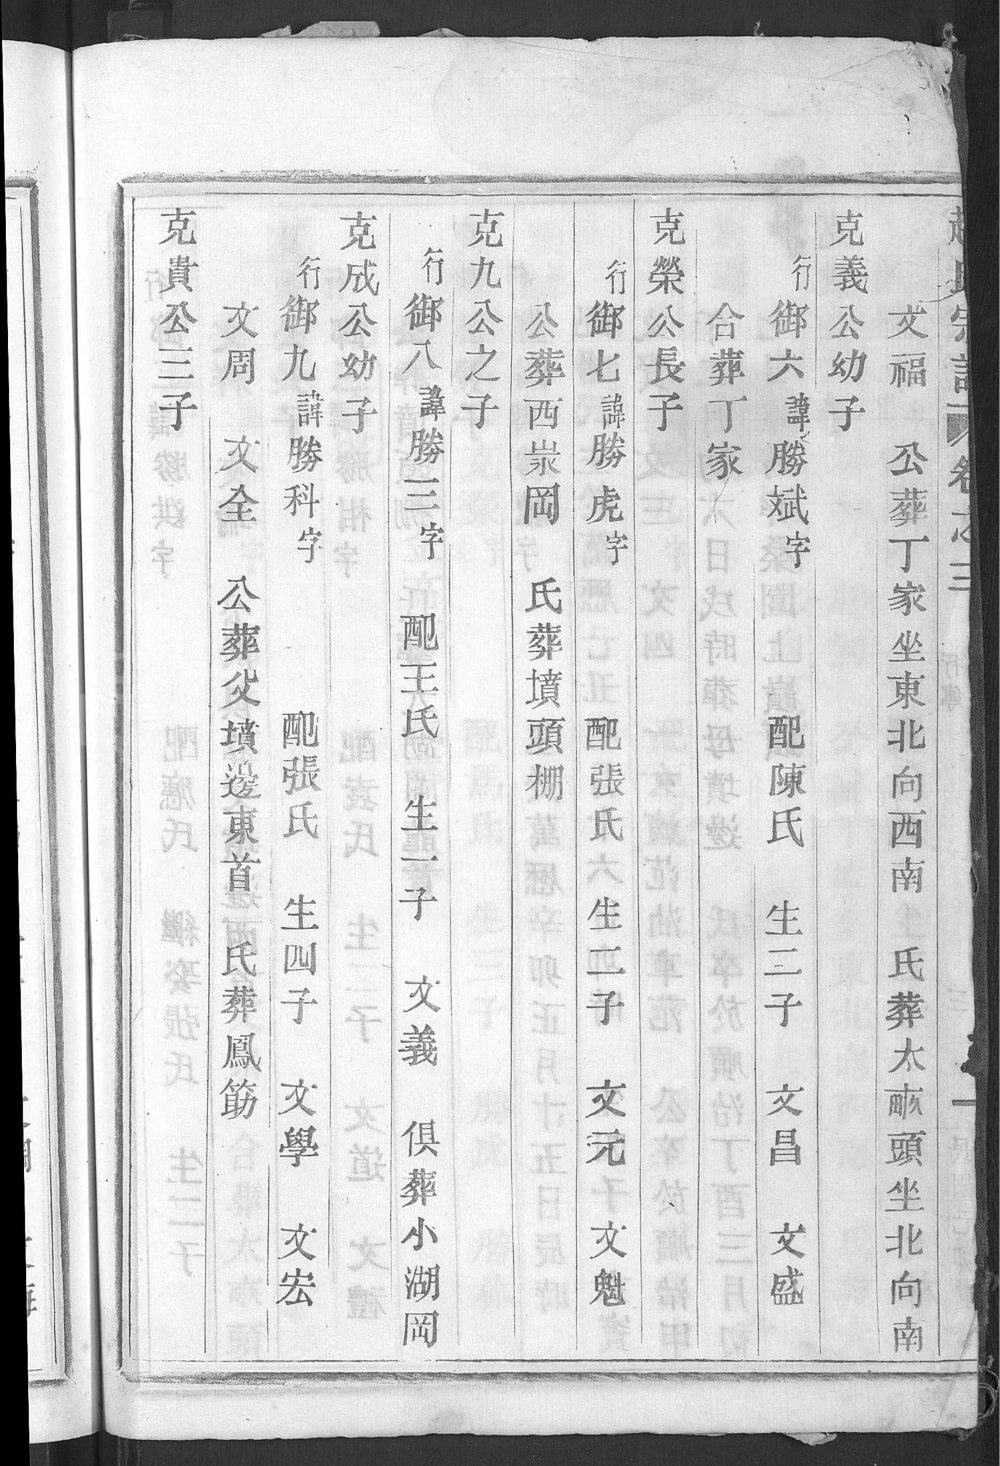 趙氏宗譜 卷之三
文福 公葬丁家坐東北向西南 氏葬太畝頭坐北向南
克義公幼子
行御六諱勝斌字 配陳氏 生二子 文昌 文盛
合葬丁家
克榮公長子
行御七諱勝虎字 配張氏 生二子 文元 文魁
公葬西岽岡 氏葬墳頭棚
克九公之子
行御八諱勝三字 配王氏 生一子 文義 俱葬小湖岡
克成公幼子
行御九諱勝科字 配張氏 生四子 文學 文宏
文周 文全 公葬父墳邊東首 氏葬鳳筯
克貴公三子